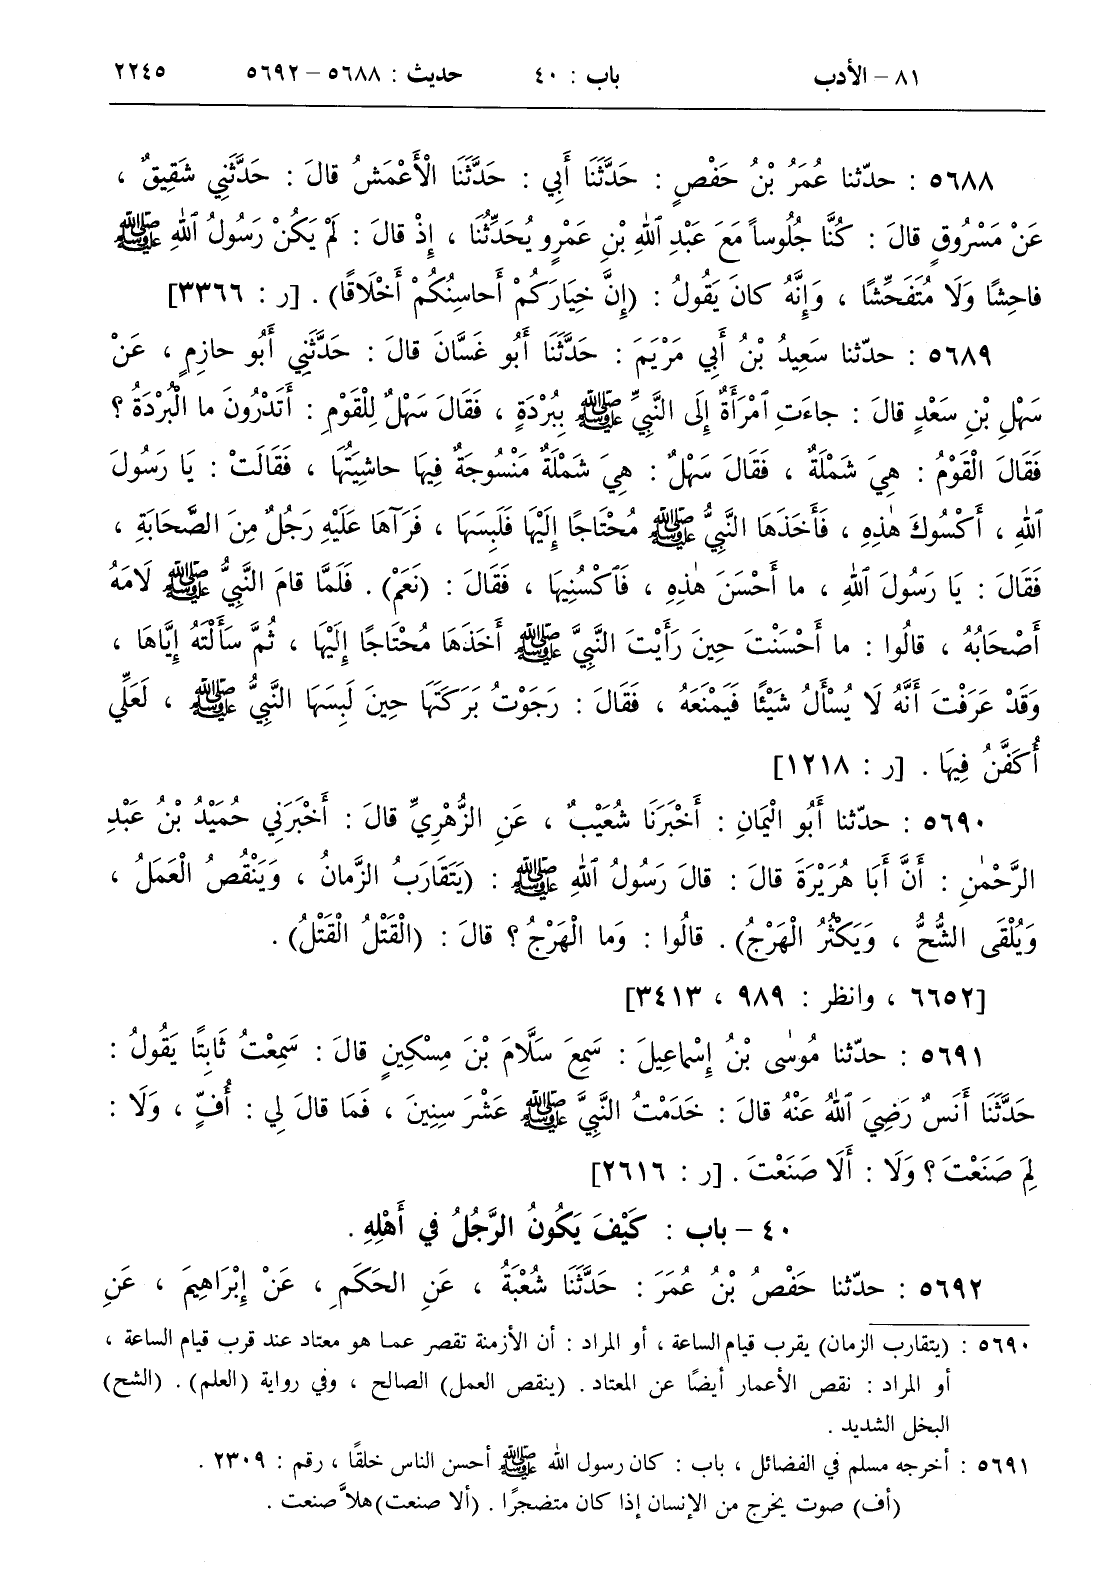 ٨١ – الأدب باب : ٤٠ حديث : ٥٦٨٨ – ٥٦٩٢ ٢٢٤٥
٥٦٨٨ : حدّثنا عُمَرُ بْنُ حَفْصٍ : حَدَّثَنَا أَبِي : حَدَّثَنَا الْأَعْمَشُ قالَ : حَدَّثَنِي شَقِيقٌ ،
عَنْ مَسْرُوقٍ قالَ : كُنَّا جُلُوساً مَعَ عَبْدِ ٱللهِ بْنِ عَمْرٍو يُحَدِّثُنَا ، إِذْ قالَ : لَمْ يَكُنْ رَسُولُ ٱللهِ ﷺ
فاحِشًا وَلَا مُتَفَحِّشًا ، وَإِنَّهُ كانَ يَقُولُ : (إِنَّ خِيَارَكُمْ أَحاسِنُكُمْ أَخْلَاقًا) . [ر : ٣٣٦٦]
٥٦٨٩ : حدّثنا سَعِيدُ بْنُ أَبِي مَرْيَمَ : حَدَّثَنَا أَبُو غَسَّانَ قالَ : حَدَّثَنِي أَبُو حازِمٍ ، عَنْ
سَهْلِ بْنِ سَعْدٍ قالَ : جاءَتِ ٱمْرَأَةٌ إِلَى النَّبِيِّ ﷺ بِبُرْدَةٍ ، فَقَالَ سَهْلٌ لِلْقَوْمِ : أَتَدْرُونَ ما الْبُرْدَةُ ؟
فَقَالَ الْقَوْمُ : هِيَ شَمْلَةٌ ، فَقَالَ سَهْلٌ : هِيَ شَمْلَةٌ مَنْسُوجَةٌ فِيهَا حاشِيَتُهَا ، فَقَالَتْ : يَا رَسُولَ
ٱللهِ ، أَكْسُوكَ هٰذِهِ ، فَأَخَذَهَا النَّبِيُّ ﷺ مُحْتَاجًا إِلَيْهَا فَلَبِسَهَا ، فَرَآهَا عَلَيْهِ رَجُلٌ مِنَ الصَّحَابَةِ ،
فَقَالَ : يَا رَسُولَ ٱللهِ ، ما أَحْسَنَ هٰذِهِ ، فَٱكْسُنِيهَا ، فَقَالَ : (نَعَمْ) . فَلَمَّا قامَ النَّبِيُّ ﷺ لَامَهُ
أَصْحَابُهُ ، قالُوا : ما أَحْسَنْتَ حِينَ رَأَيْتَ النَّبِيَّ ﷺ أَخَذَهَا مُحْتَاجًا إِلَيْهَا ، ثُمَّ سَأَلْتَهُ إِيَّاهَا ،
وَقَدْ عَرَفْتَ أَنَّهُ لَا يُسْأَلُ شَيْئًا فَيَمْنَعَهُ ، فَقَالَ : رَجَوْتُ بَرَكَتَهَا حِينَ لَبِسَهَا النَّبِيُّ ﷺ ، لَعَلِّي
أُكَفَّنُ فِيهَا . [ر : ١٢١٨]
٥٦٩٠ : حدّثنا أَبُو الْيَمانِ : أَخْبَرَنَا شُعَيْبٌ ، عَنِ الزُّهْرِيِّ قالَ : أَخْبَرَنِي حُمَيْدُ بْنُ عَبْدِ
الرَّحْمٰنِ : أَنَّ أَبَا هُرَيْرَةَ قالَ : قالَ رَسُولُ ٱللهِ ﷺ : (يَتَقَارَبُ الزَّمانُ ، وَيَنْقُصُ الْعَمَلُ ،
وَيُلْقَى الشُّحُّ ، وَيَكْثُرُ الْهَرْجُ) . قالُوا : وَما الْهَرْجُ ؟ قالَ : (الْقَتْلُ الْقَتْلُ) .
[٦٦٥٢ ، وانظر : ٩٨٩ ، ٣٤١٣]
٥٦٩١ : حدّثنا مُوسٰى بْنُ إِسْماعِيلَ : سَمِعَ سَلَّامَ بْنَ مِسْكِينٍ قالَ : سَمِعْتُ ثَابِتًا يَقُولُ :
حَدَّثَنَا أَنَسٌ رَضِيَ ٱللهُ عَنْهُ قالَ : خَدَمْتُ النَّبِيَّ ﷺ عَشْرَ سِنِينَ ، فَمَا قالَ لِي : أُفٍّ ، وَلَا :
لِمَ صَنَعْتَ ؟ وَلَا : أَلَا صَنَعْتَ . [ر : ٢٦١٦]
٤٠ – باب : كَيْفَ يَكُونُ الرَّجُلُ فِي أَهْلِهِ .
٥٦٩٢ : حدّثنا حَفْصُ بْنُ عُمَرَ : حَدَّثَنَا شُعْبَةُ ، عَنِ الحَكَمِ ، عَنْ إِبْرَاهِيمَ ، عَنِ
٥٦٩٠ : (يتقارب الزمان) يقرب قيام الساعة ، أو المراد : أن الأزمنة تقصر عما هو معتاد عند قرب قيام الساعة ،
أو المراد : نقص الأعمار أيضًا عن المعتاد . (ينقص العمل) الصالح ، وفي رواية (العلم) . (الشح)
البخل الشديد .
٥٦٩١ : أخرجه مسلم في الفضائل ، باب : كان رسول الله ﷺ أحسن الناس خلقًا ، رقم : ٢٣٠٩ .
(أف) صوت يخرج من الإنسان إذا كان متضجرًا . (ألا صنعت) هلاَّ صنعت .